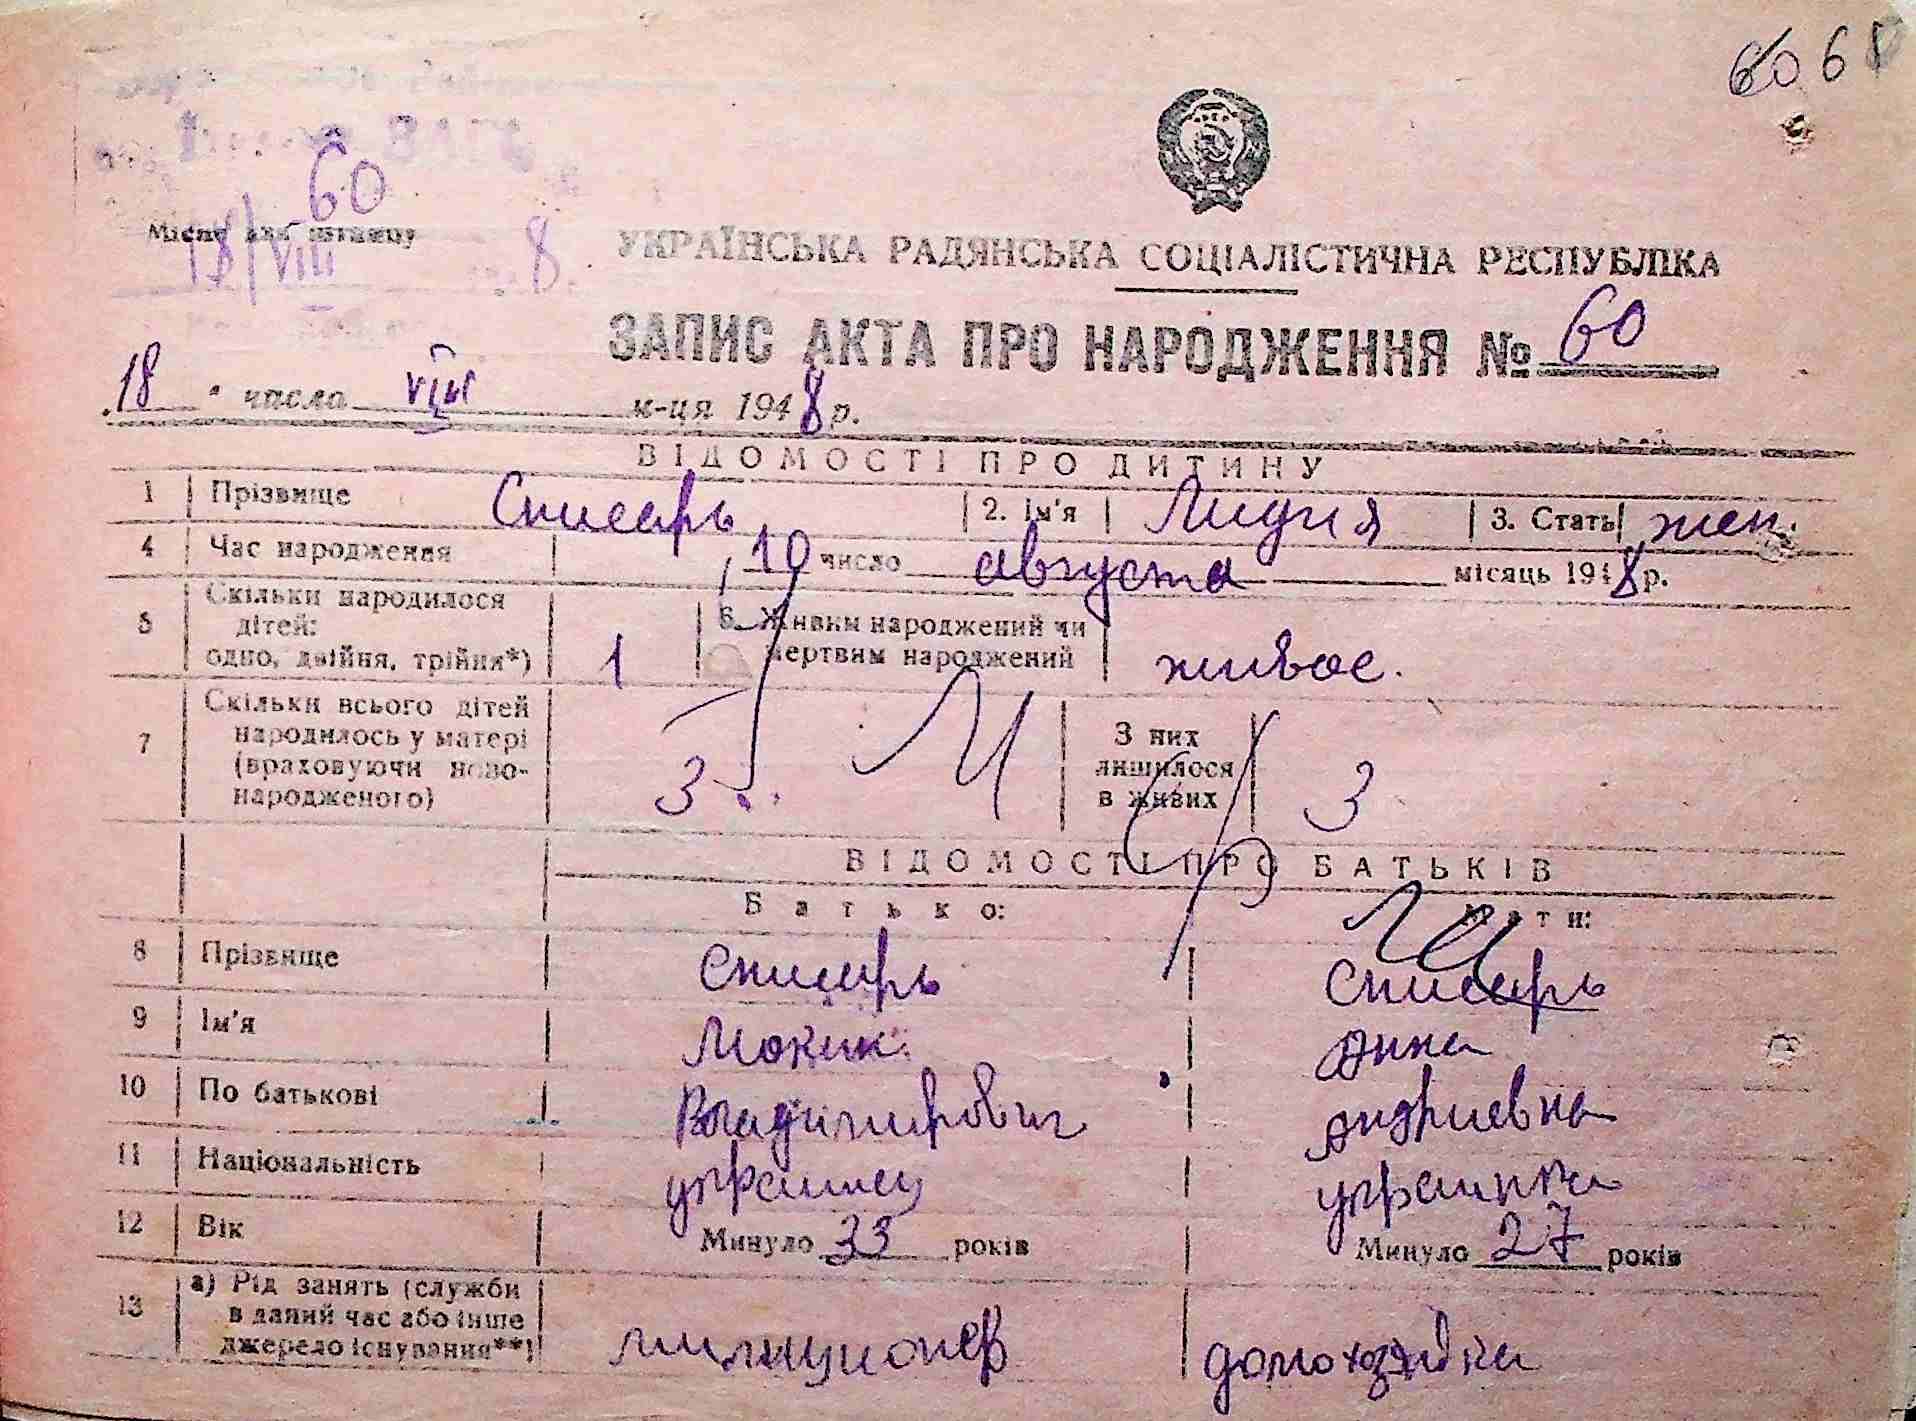 60 6
60
Місце для штампу
18/VIII 8.
УКРАЇНСЬКА РАДЯНСЬКА СОЦІАЛІСТИЧНА РЕСПУБЛІКА
ЗАПИС АКТА ПРО НАРОДЖЕННЯ № 60
18 " числа VIII м-ця 1948 р.
ВІДОМОСТІ ПРО ДИТИНУ
1 Прізвище Списарь 2. Ім'я Лидия 3. Стать жен.
4 Час народження 10 число августа місяць 1948 р.
5 Скільки народилося дітей: одно, двійня, трійня*) 1 6. Живим народжений чи мертвим народжений живое.
7 Скільки всього дітей народилось у матері (враховуючи ново-народженого) 3 З них лишилося в живих 3
ВІДОМОСТІ ПРО БАТЬКІВ
Батько: Мати:
8 Прізвище Списарь Списарь
9 Ім'я Мокий Анна
10 По батькові Владимирович Андриевна
11 Національність украинец украинка
12 Вік Минуло 33 років Минуло 27 років
13 а) Рід занять (служби в даний час або інше джерело існування**) милиционер домохозяйка